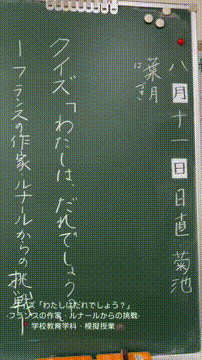 八月十一日 日直 菊池
葉月
はづき
クイズ「わたしは、だれでしょう?」
―フランスの作家 ルナールからの挑戦―
クイズ「わたしはだれでしょう?」
-フランスの作家・ルナールからの挑戦-
学校教育学科・模擬授業